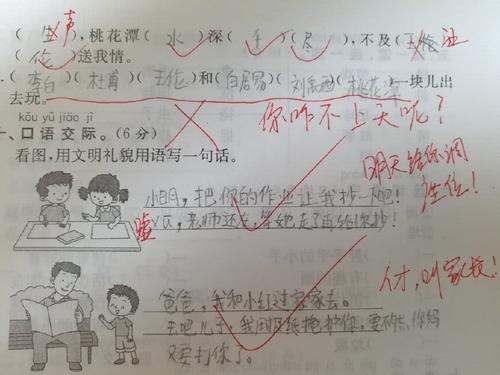 声
(生),桃花潭(水)深(千)(尺),不及(汪
(伦)送我情。
(李白)(杜甫)(王伦)和(白居易)(刘禹锡)(桃花潭)一块儿出
去玩。
你咋不上天呢?
kǒu yǔ jiāo jì
、口语交际。(6分)
看图,用文明礼貌用语写一句话。
小明,把你的作业让我抄一下吧!
嘘 老师还在,等她走了再给你抄!
明天给你调
座位!
爸爸,我和小红过家家去。
去吧儿子,我用报纸掩护你,要不然,你妈
又要打你了。
叫家长!